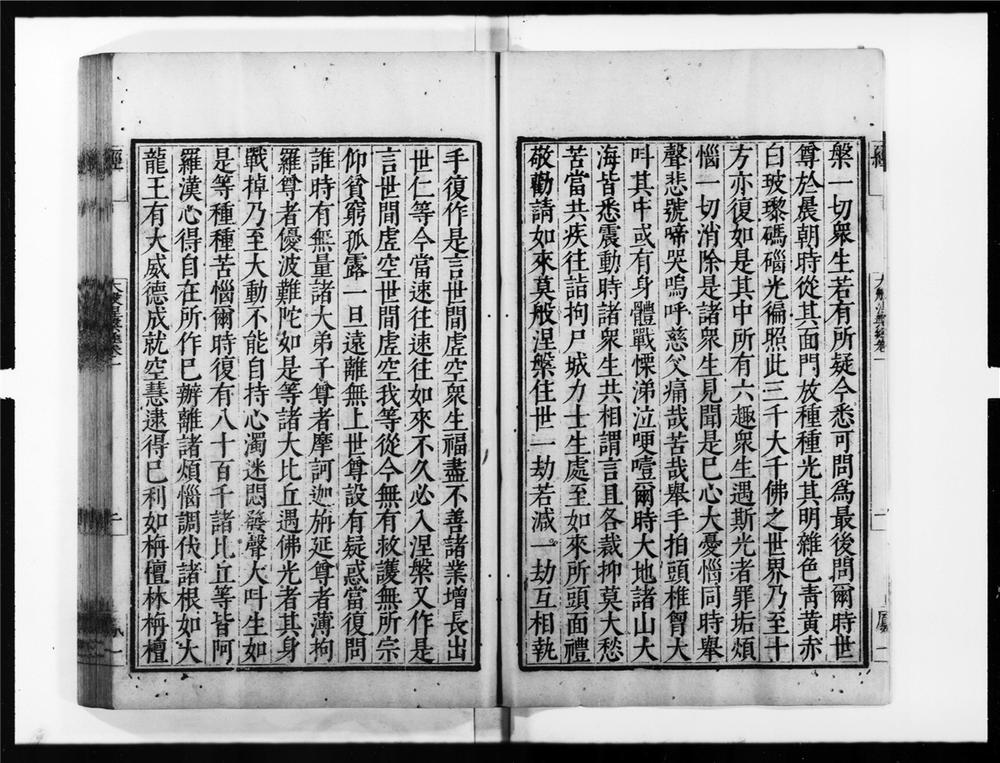 槃一切衆生若有所疑今悉可問爲最後問爾時世
尊於晨朝時從其面門放種種光其明雜色青黃赤
白玻瓈碼碯光徧照此三千大千佛之世界乃至十
方亦復如是其中所有六趣衆生遇斯光者罪垢煩
惱一切消除是諸衆生見聞是已心大憂惱同時舉
聲悲號啼哭嗚呼慈父痛哉苦哉舉手拍頭椎胷大
叫其中或有身體戰慄涕泣哽噎爾時大地諸山大
海皆悉震動時諸衆生共相謂言且各裁抑莫大愁
苦當共疾往詣拘尸城力士生處至如來所頭面禮
敬勸請如來莫般涅槃住世一劫若減一劫互相執
手復作是言世間虛空衆生福盡不善諸業增長出
世仁等今當速往速往如來不久必入涅槃又作是
言世間虛空世間虛空我等從今無有救護無所宗
仰貧窮孤露一旦遠離無上世尊設有疑惑當復問
誰時有無量諸大弟子尊者摩訶迦旃延尊者薄拘
羅尊者優波難陀如是等諸大比丘遇佛光者其身
戰掉乃至大動不能自持心濁迷悶發聲大叫生如
是等種種苦惱爾時復有八十百千諸比丘等皆阿
羅漢心得自在所作已辦離諸煩惱調伏諸根如大
龍王有大威德成就空慧逮得已利如栴檀林栴檀
經
大般涅槃經卷一